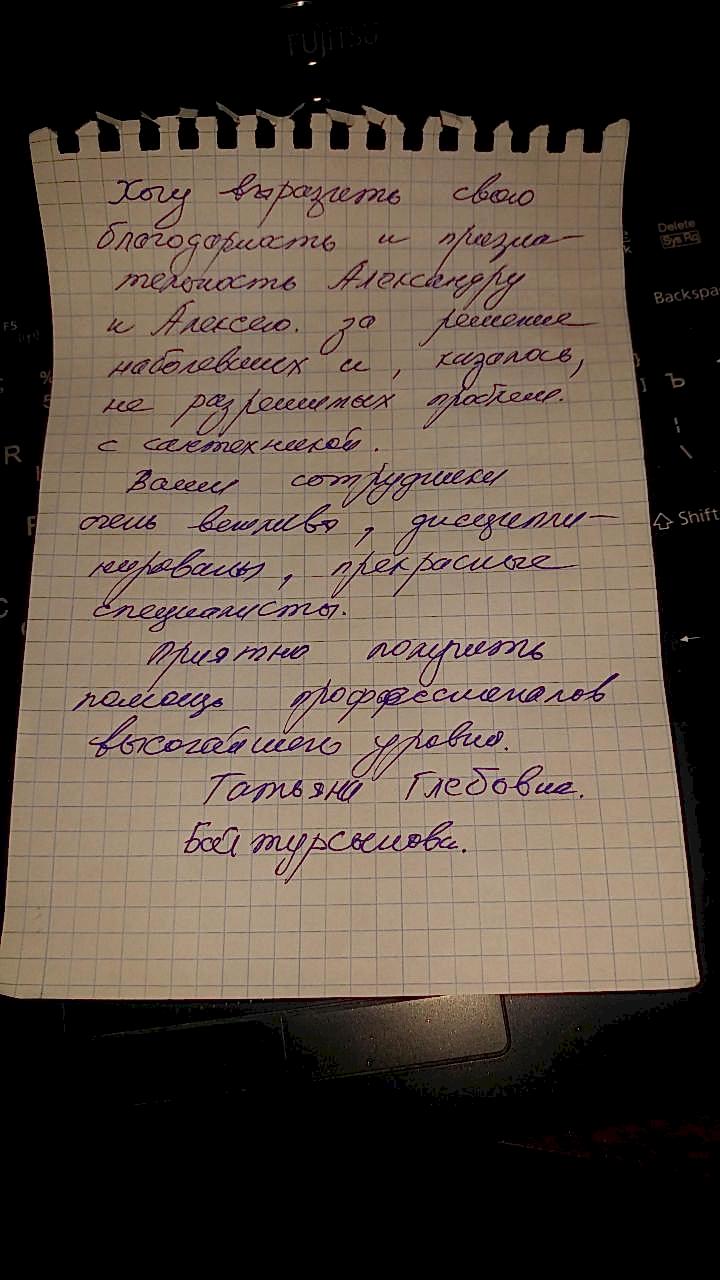 FUJITSU
Хочу выразить свою
благодарность и призна-
тельность Александру
и Алексею. за решение
наболевших и, казалось,
не разрешимых проблем.
с сантехникой.
Ваши сотрудники
очень вежливы, дисципли-
нированы, прекрасные
специалисты.
Приятно получить
помощь профессионалов
высочайшего уровня.
Татьяна Глебовна.
Байтурсынова.
Delete
Sys Rq
Backspa
F5
%
5
R
Ъ
Shift